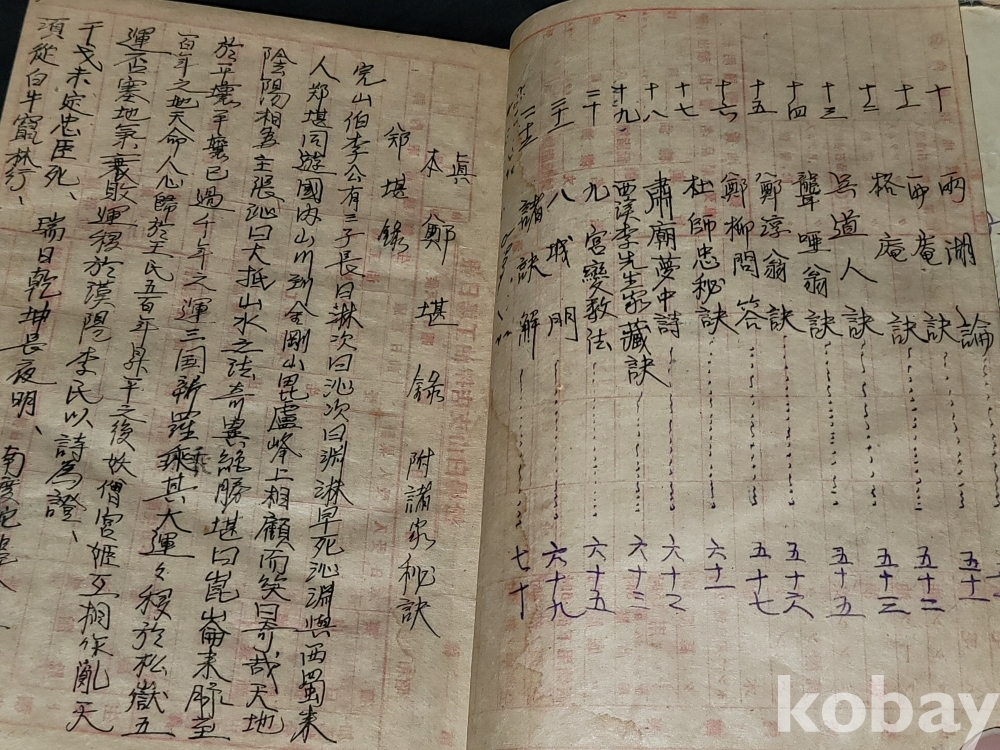 十 兩湖論 五十
十一 西菴訣 五十二
格庵訣 五十三
十二 吳道人訣 五十五
十三 聾啞翁訣 五十六
十四 鄭淳翁訣 五十七
十五 鄭柳問答
十六 杜師忠秘訣 六十一
十七 肅廟夢中詩 六十二
十八 西溪李先生家藏訣 六十三
十九 九宮變數法 六十五
二十 八城門 六十九
二十一 諸訣解 七十
眞本 鄭堪錄 附諸家秘訣
鄭堪錄
完山伯李公有三子長曰淋次曰沁次曰淵淋早死沁淵與西蜀來
人鄭堪同遊國內山川到金剛山毘盧峰上相顧而笑曰奇哉天地
陰陽相為主張沁曰大抵山水之法奇異絕勝堪曰崑崙來脉至
於平壤平壤已過千年之運三国新羅乘其大運々移於松嶽五
百年之地天命人心歸於王氏五百年昇平之後妖僧宮姬互相作亂天
運否塞地氣衰敗運移於漢陽李氏以詩為證、
干戈未定忠臣死、瑞日乾坤長夜明、南渡蛇
須從白牛竄林行、
kobay